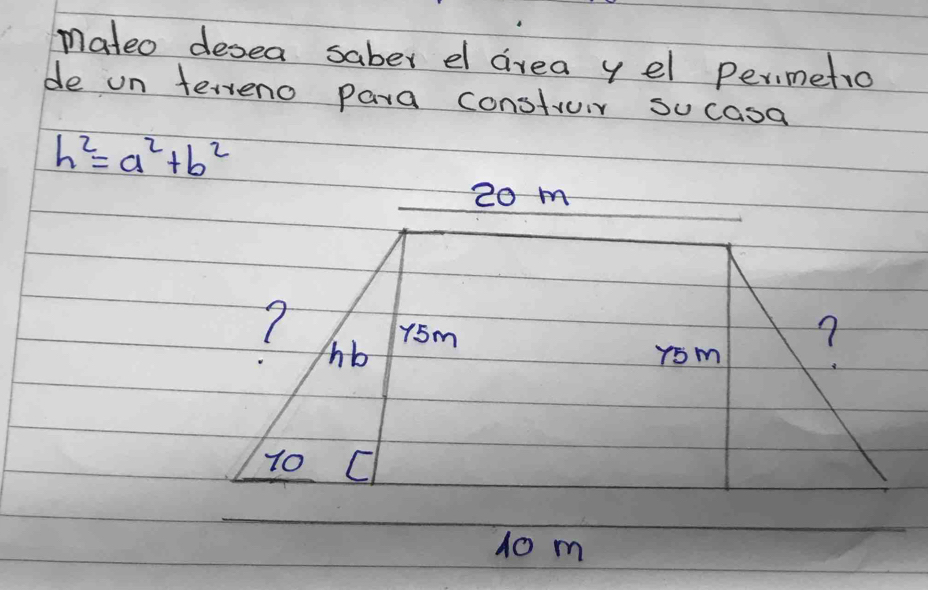 Mateo desea saber el área y el Perimetro
de un terreno para construir su casa
h²=a²+b²
20 m
?
hb
15m
15m
?
10
10 m